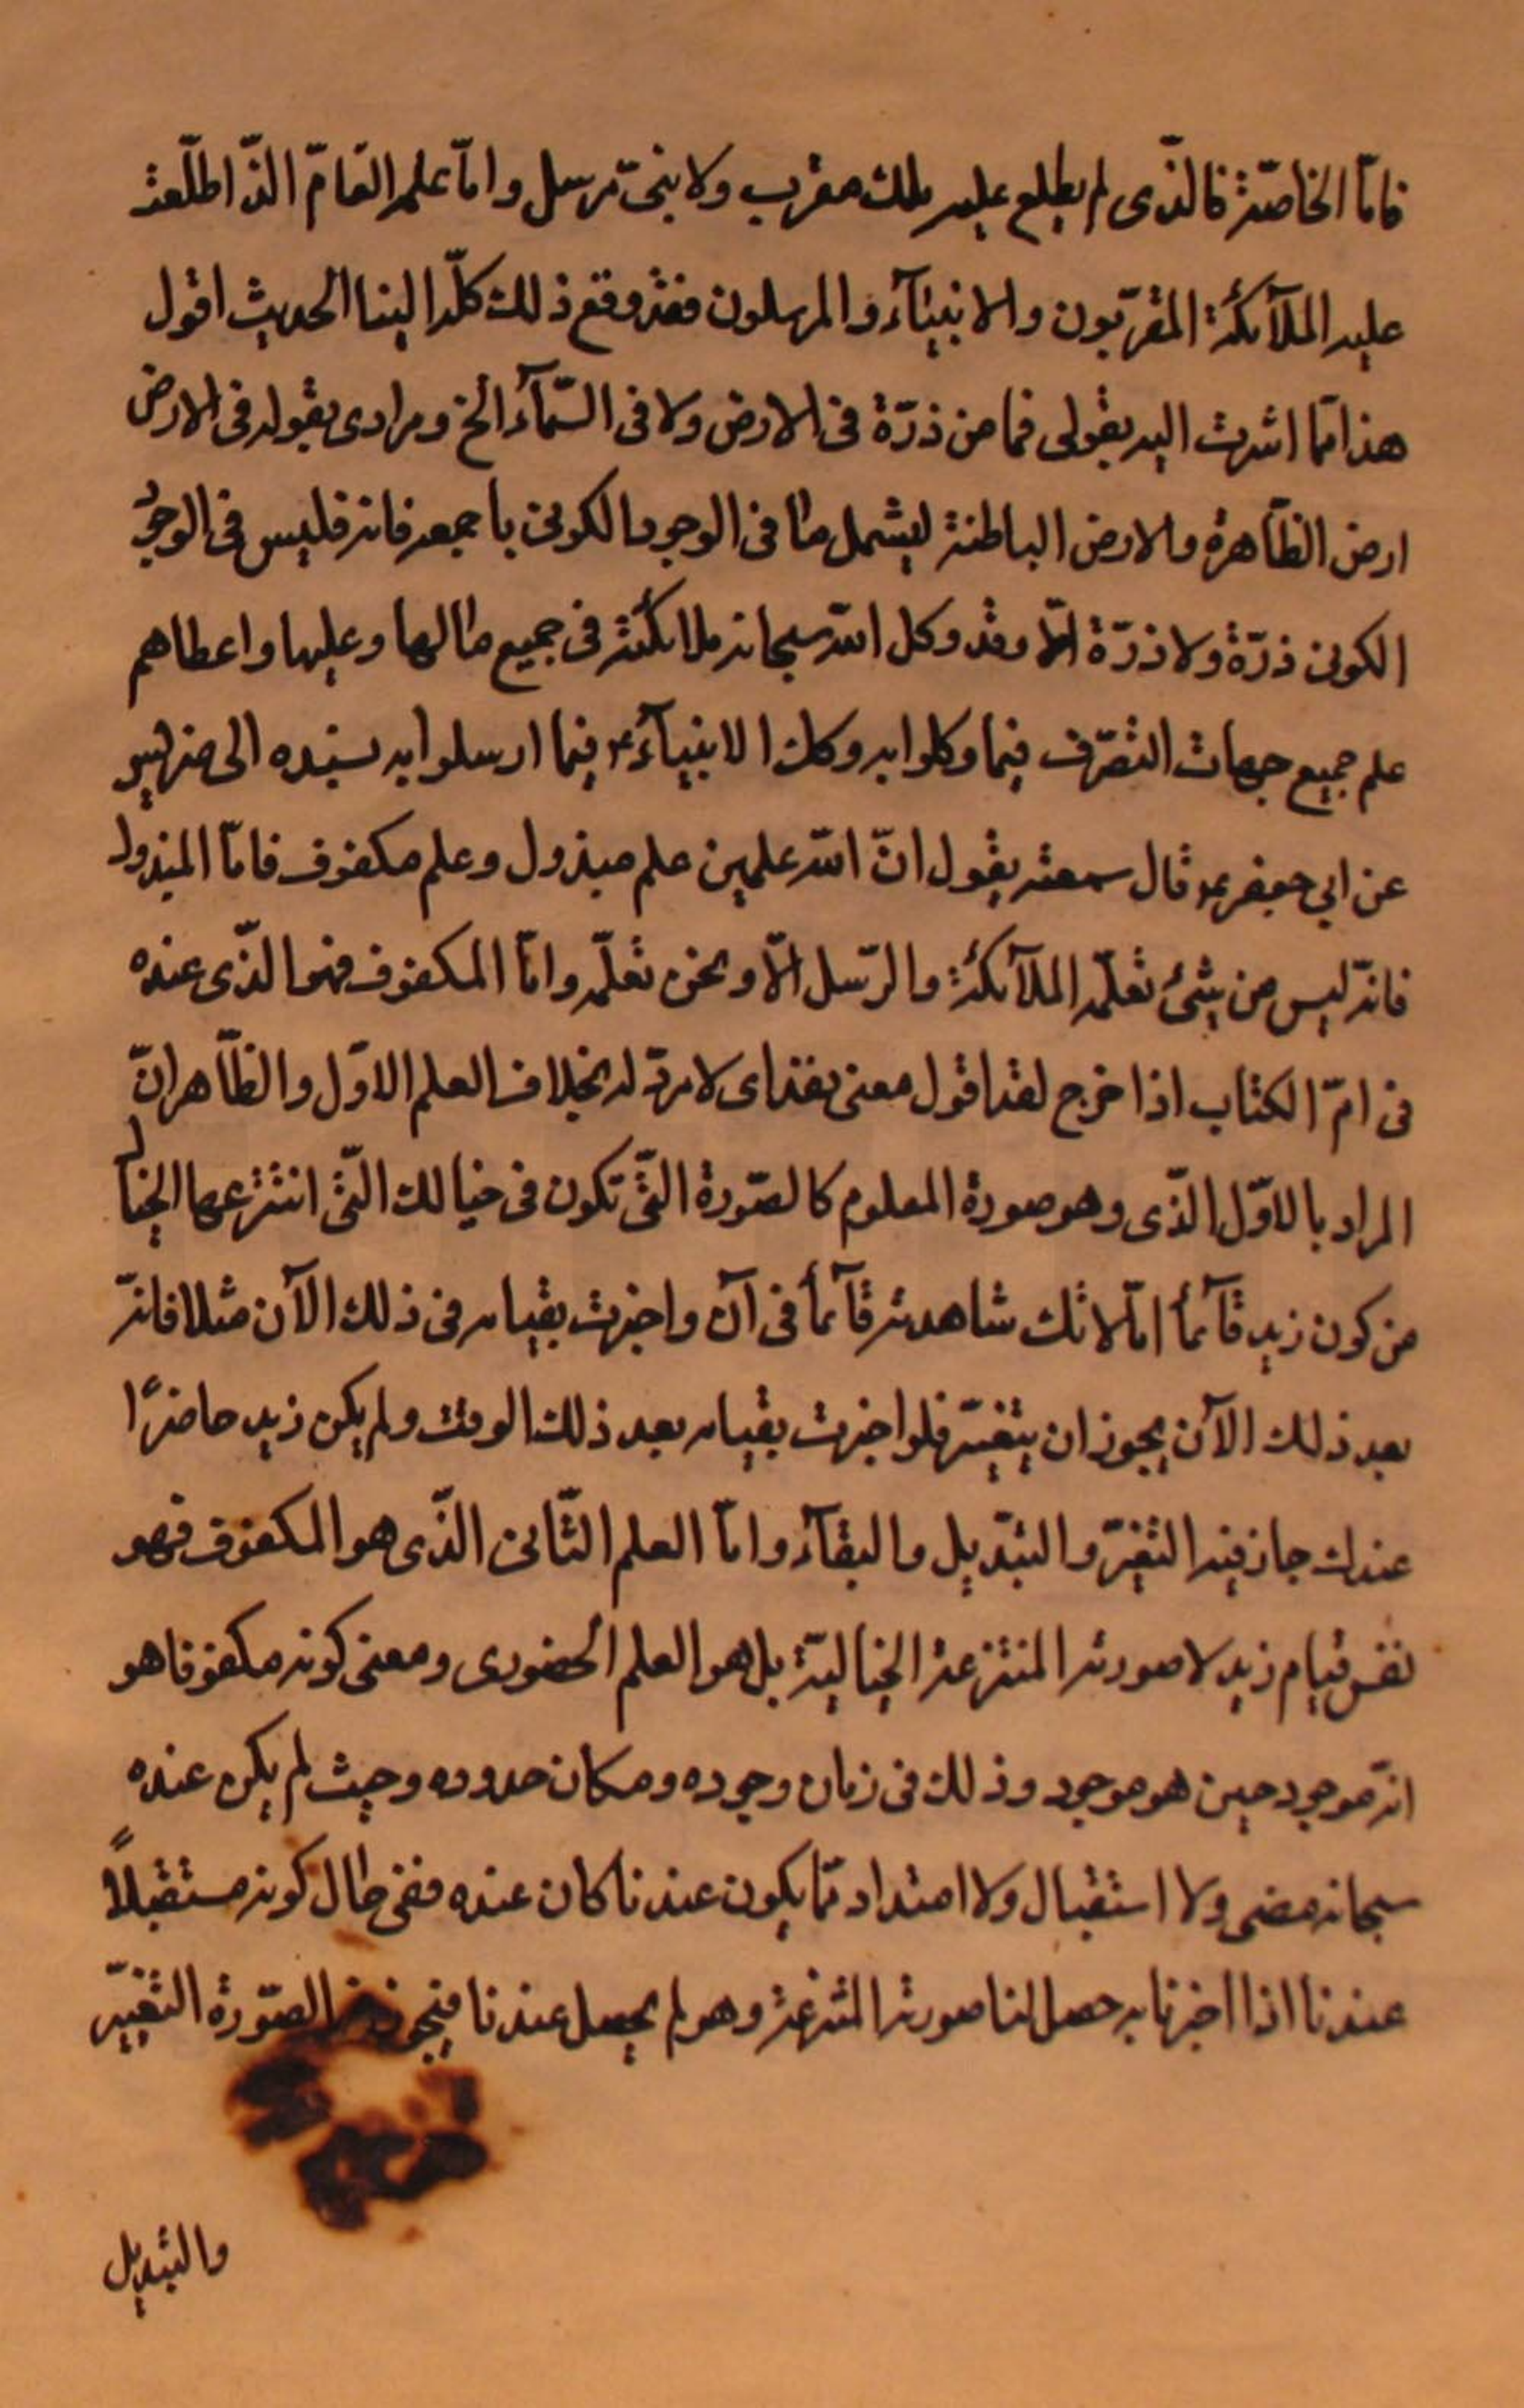 فامّا الخاصّة فالذّى لم يطلع عليه ملك مقرب ولا نبىّ مرسل وامّا علمه العامّ الذّ اطلّعت
عليه الملآئكة المقرّبون والانبيآء والمرسلون فقد وقع ذلك كلّه الينا الحديث اقول
هذا ممّا اشرت اليه بقولى فما من ذرّة فى الارض ولا فى السّمآء الخ ومرادى بقوله فى الارض
ارض الظّاهرة والارض الباطنة ليشمل ما فى الوجود الكونى باجمعه فانه فليس فى الوجود
الكونى ذرّة ولا ذرّة الّا وقد وكل الله سبحانه ملائكة فى جميع ما لها وعليها واعطاهم
علم جميع جهات التصرّف فيما وكلوا به وكك الانبيآء ع فيما ارسلوا به بسنده الى ضريس
عن ابي جعفر ع قال سمعته يقول انّ الله علمين علم مبذول وعلم مكفوف فامّا المبذول
فانّه ليس من شئ تعلّمه الملآئكة والرّسل الّا ونحن نعلّمه وامّا المكفوف فهو الذّى عنده
فى امّ الكتاب اذا خرج نفذ اقول معنى نفذ اى لا مردّ له بخلاف العلم الاوّل والظّاهر انّ
المراد بالاوّل الذّى وهو صورة المعلوم كالصّورة التّى تكون فى خيالك التّى انتزعها الخيال
من كون زيد قآئماً امّا لانك شاهدته قآئماً فى آن واخبرت بقيامه فى ذلك الآن مثلا فانّه
بعد ذلك الآن يجوز ان يتغيّر فلو اخبرت بقيامه بعد ذلك الوقت ولم يكن زيد حاضرًا
عندك جاز فيه التغيّر والتبّديل والبقآء وامّا العلم الثّانى الذّى هو المكفوف فهو
نفس قيام زيد لا صورته المنتزعة الخياليّة بل هو العلم الحضورى ومعنى كونه مكفوفا هو
انّه موجود حين هو موجود وذلك فى زمان وجوده ومكان حدوده وحيث لم يكن عنده
سبحانه مضى ولا استقبال ولا امتداد ممّا يكون عندنا كان عنده ففى حال كونه مستقبلاً
عندنا اذا اخبرنا به حصل لنا صورته المنتزعة وهو لم يحصل عندنا فيجوز الصّورة التغيّير
والتبديل